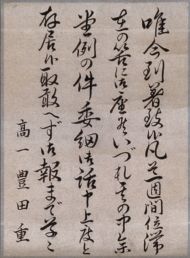 唯今到著致候凡一週間位滞
在の筈に御座候いづれ其の中参
堂例の件委細御話申上度と
存居候取敢へず御報まで草々
高一 豊田重